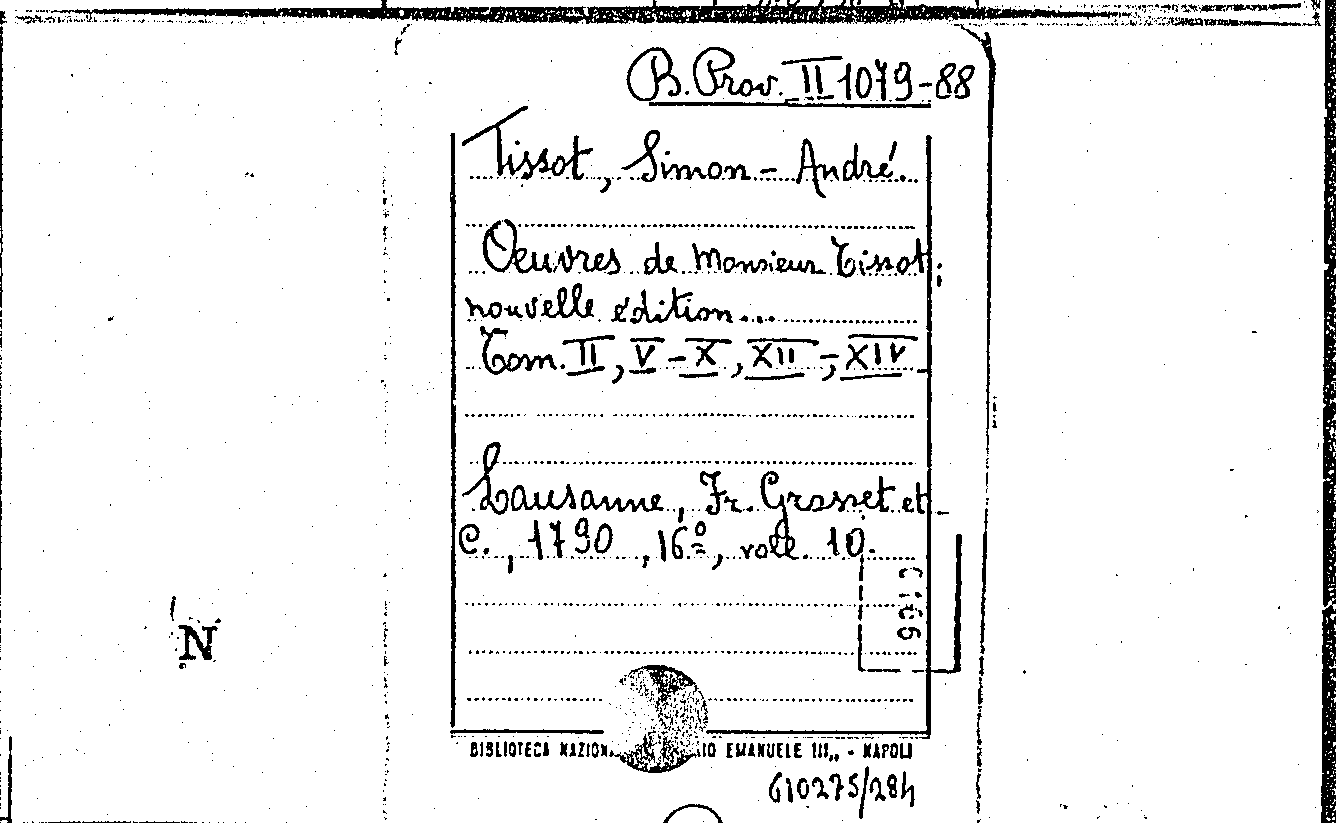 B. Prov. II 1079-88
Tissot, Simon-André.
Oeuvres de Monsieur Tissot;
nouvelle édition...
Tom. II, V-X, XII-, XIV
Lausanne, Fr. Grasset et
C., 1790, 16º, voll. 10.
N
BIBLIOTECA EMANUELE III,, - NAPOLI
610275/284